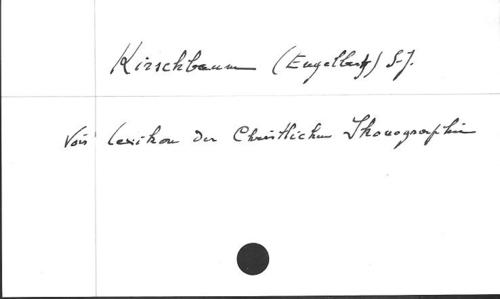 Kirschbaum (Engelbert) S.J.
Voir Lexikon der Christlichen Ikonographie